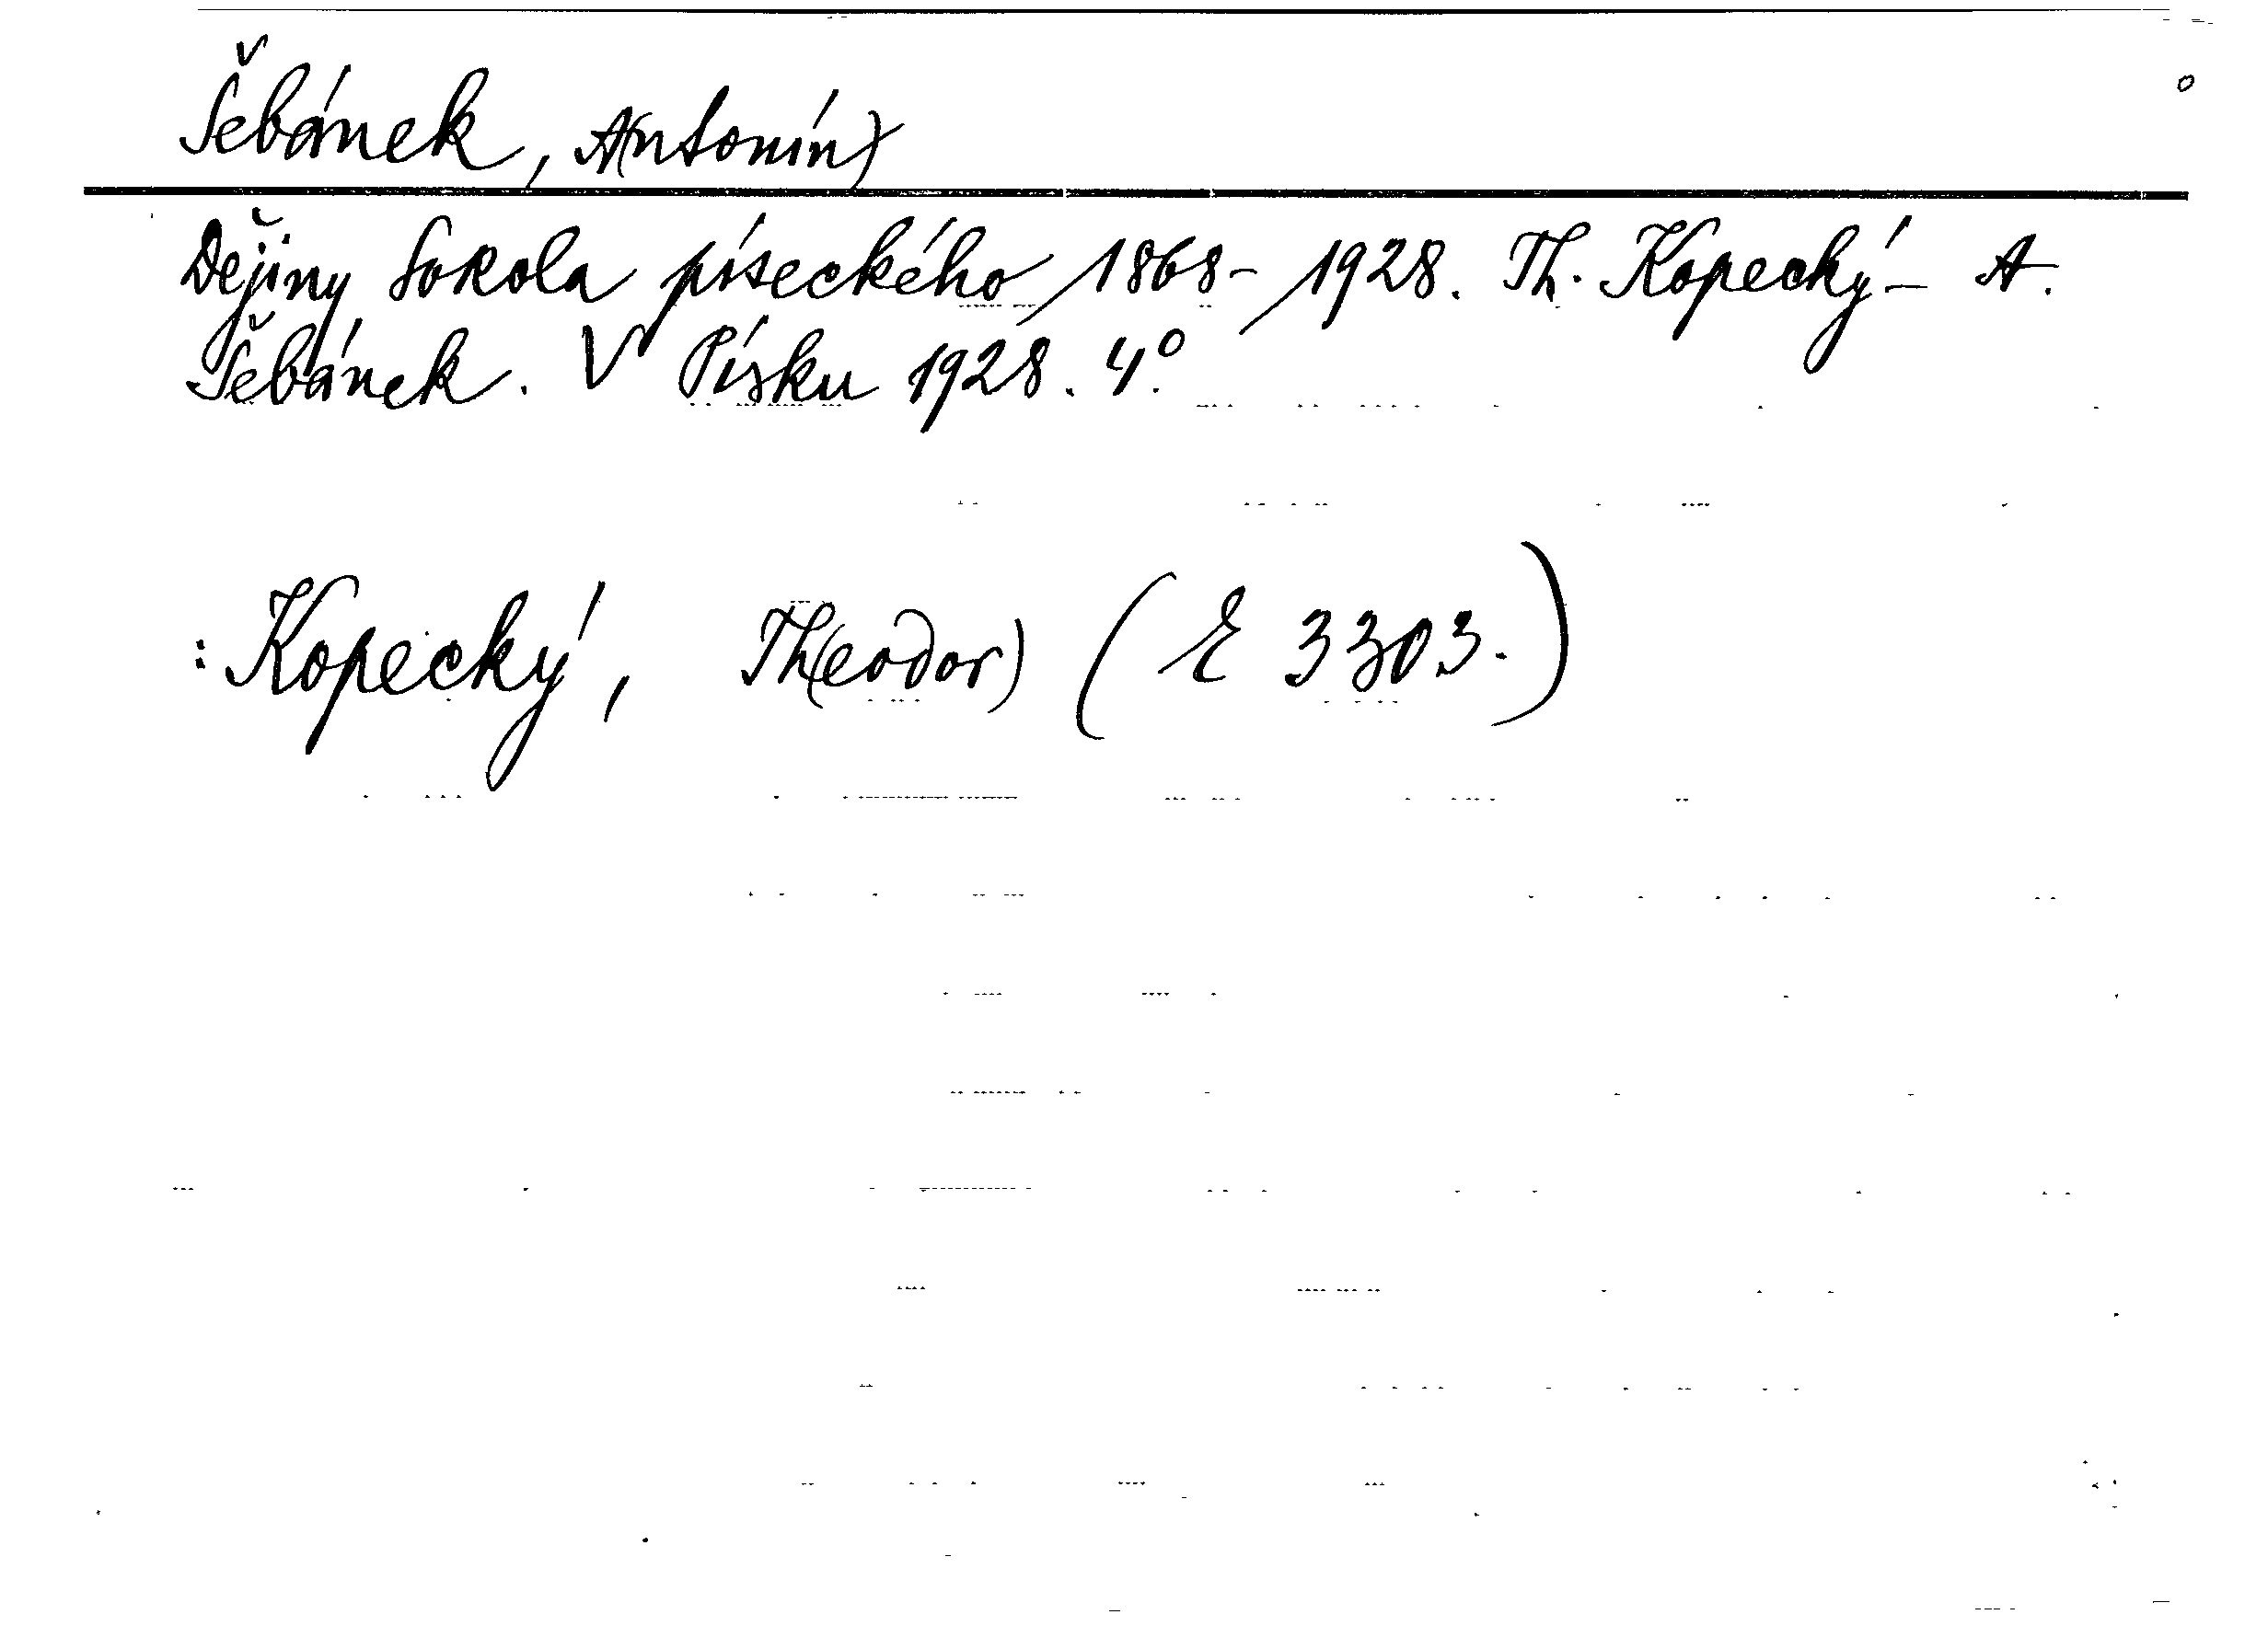 Šebánek, A(ntonín)
Dějiny Sokola píseckého 1868-1928. Th. Kopecký - A.
Šebánek. V Písku 1928. 4°.
: Kopecký, Th(eodor) (E 3303.)